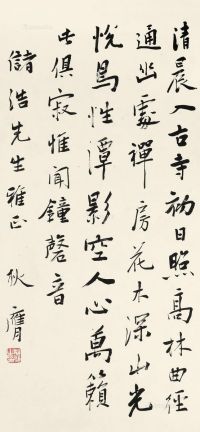 清晨入古寺初日照高林曲徑
通幽處禪房花木深山光
悅鳥性潭影空人心萬籟
此俱寂惟聞鐘磬音
儲浩先生雅正 狄膺